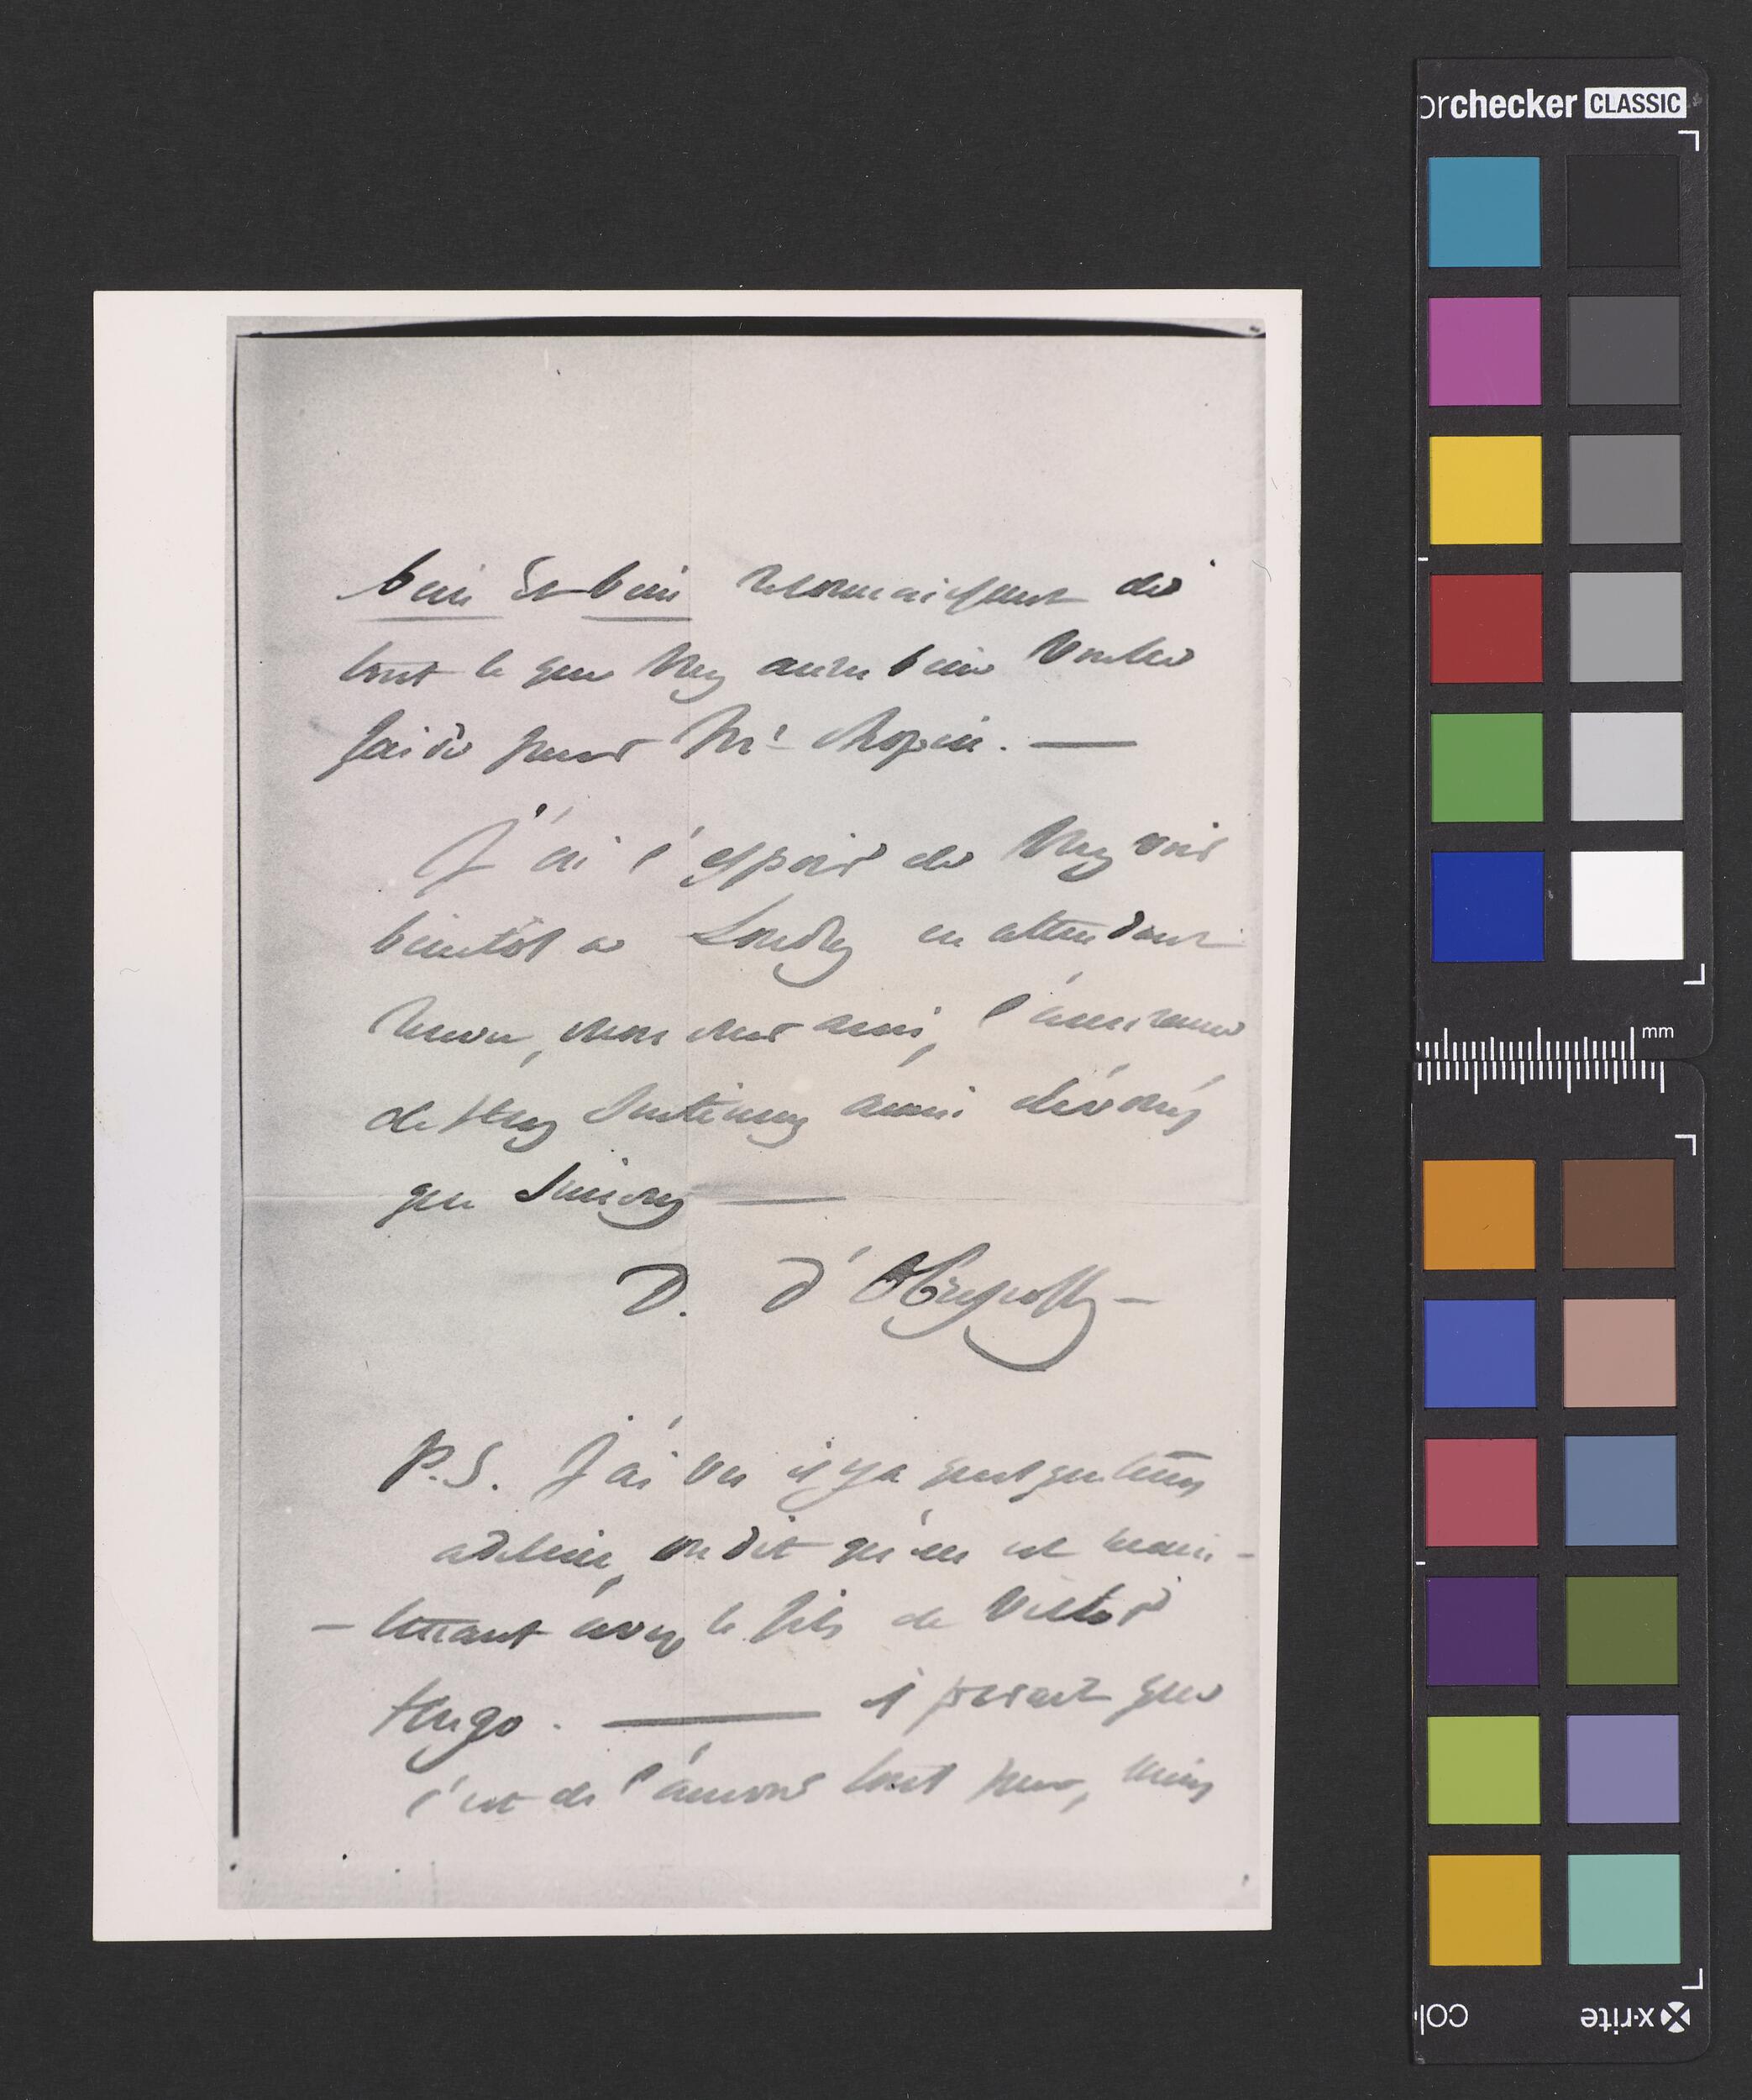 bien et bien reconnaissant de
tout ce que vous aurez bien voulu
faire pour Mr Chopin. —
J'ai l'espoir de vous voir
bientôt a Londres en attendant
mon cher ami, l'assurance
de mes sentimens aussi dévoués
que sincères —
D. d'Obreskoff —
P.S. J'ai vu il y a quelque tems
adeline, on dit qu'elle est main-
- tenant avec le fils de Victor
Hugo. — il parait que
c'est de l'amour tout pur, mais
orchecker CLASSIC
mm
x-rite
col